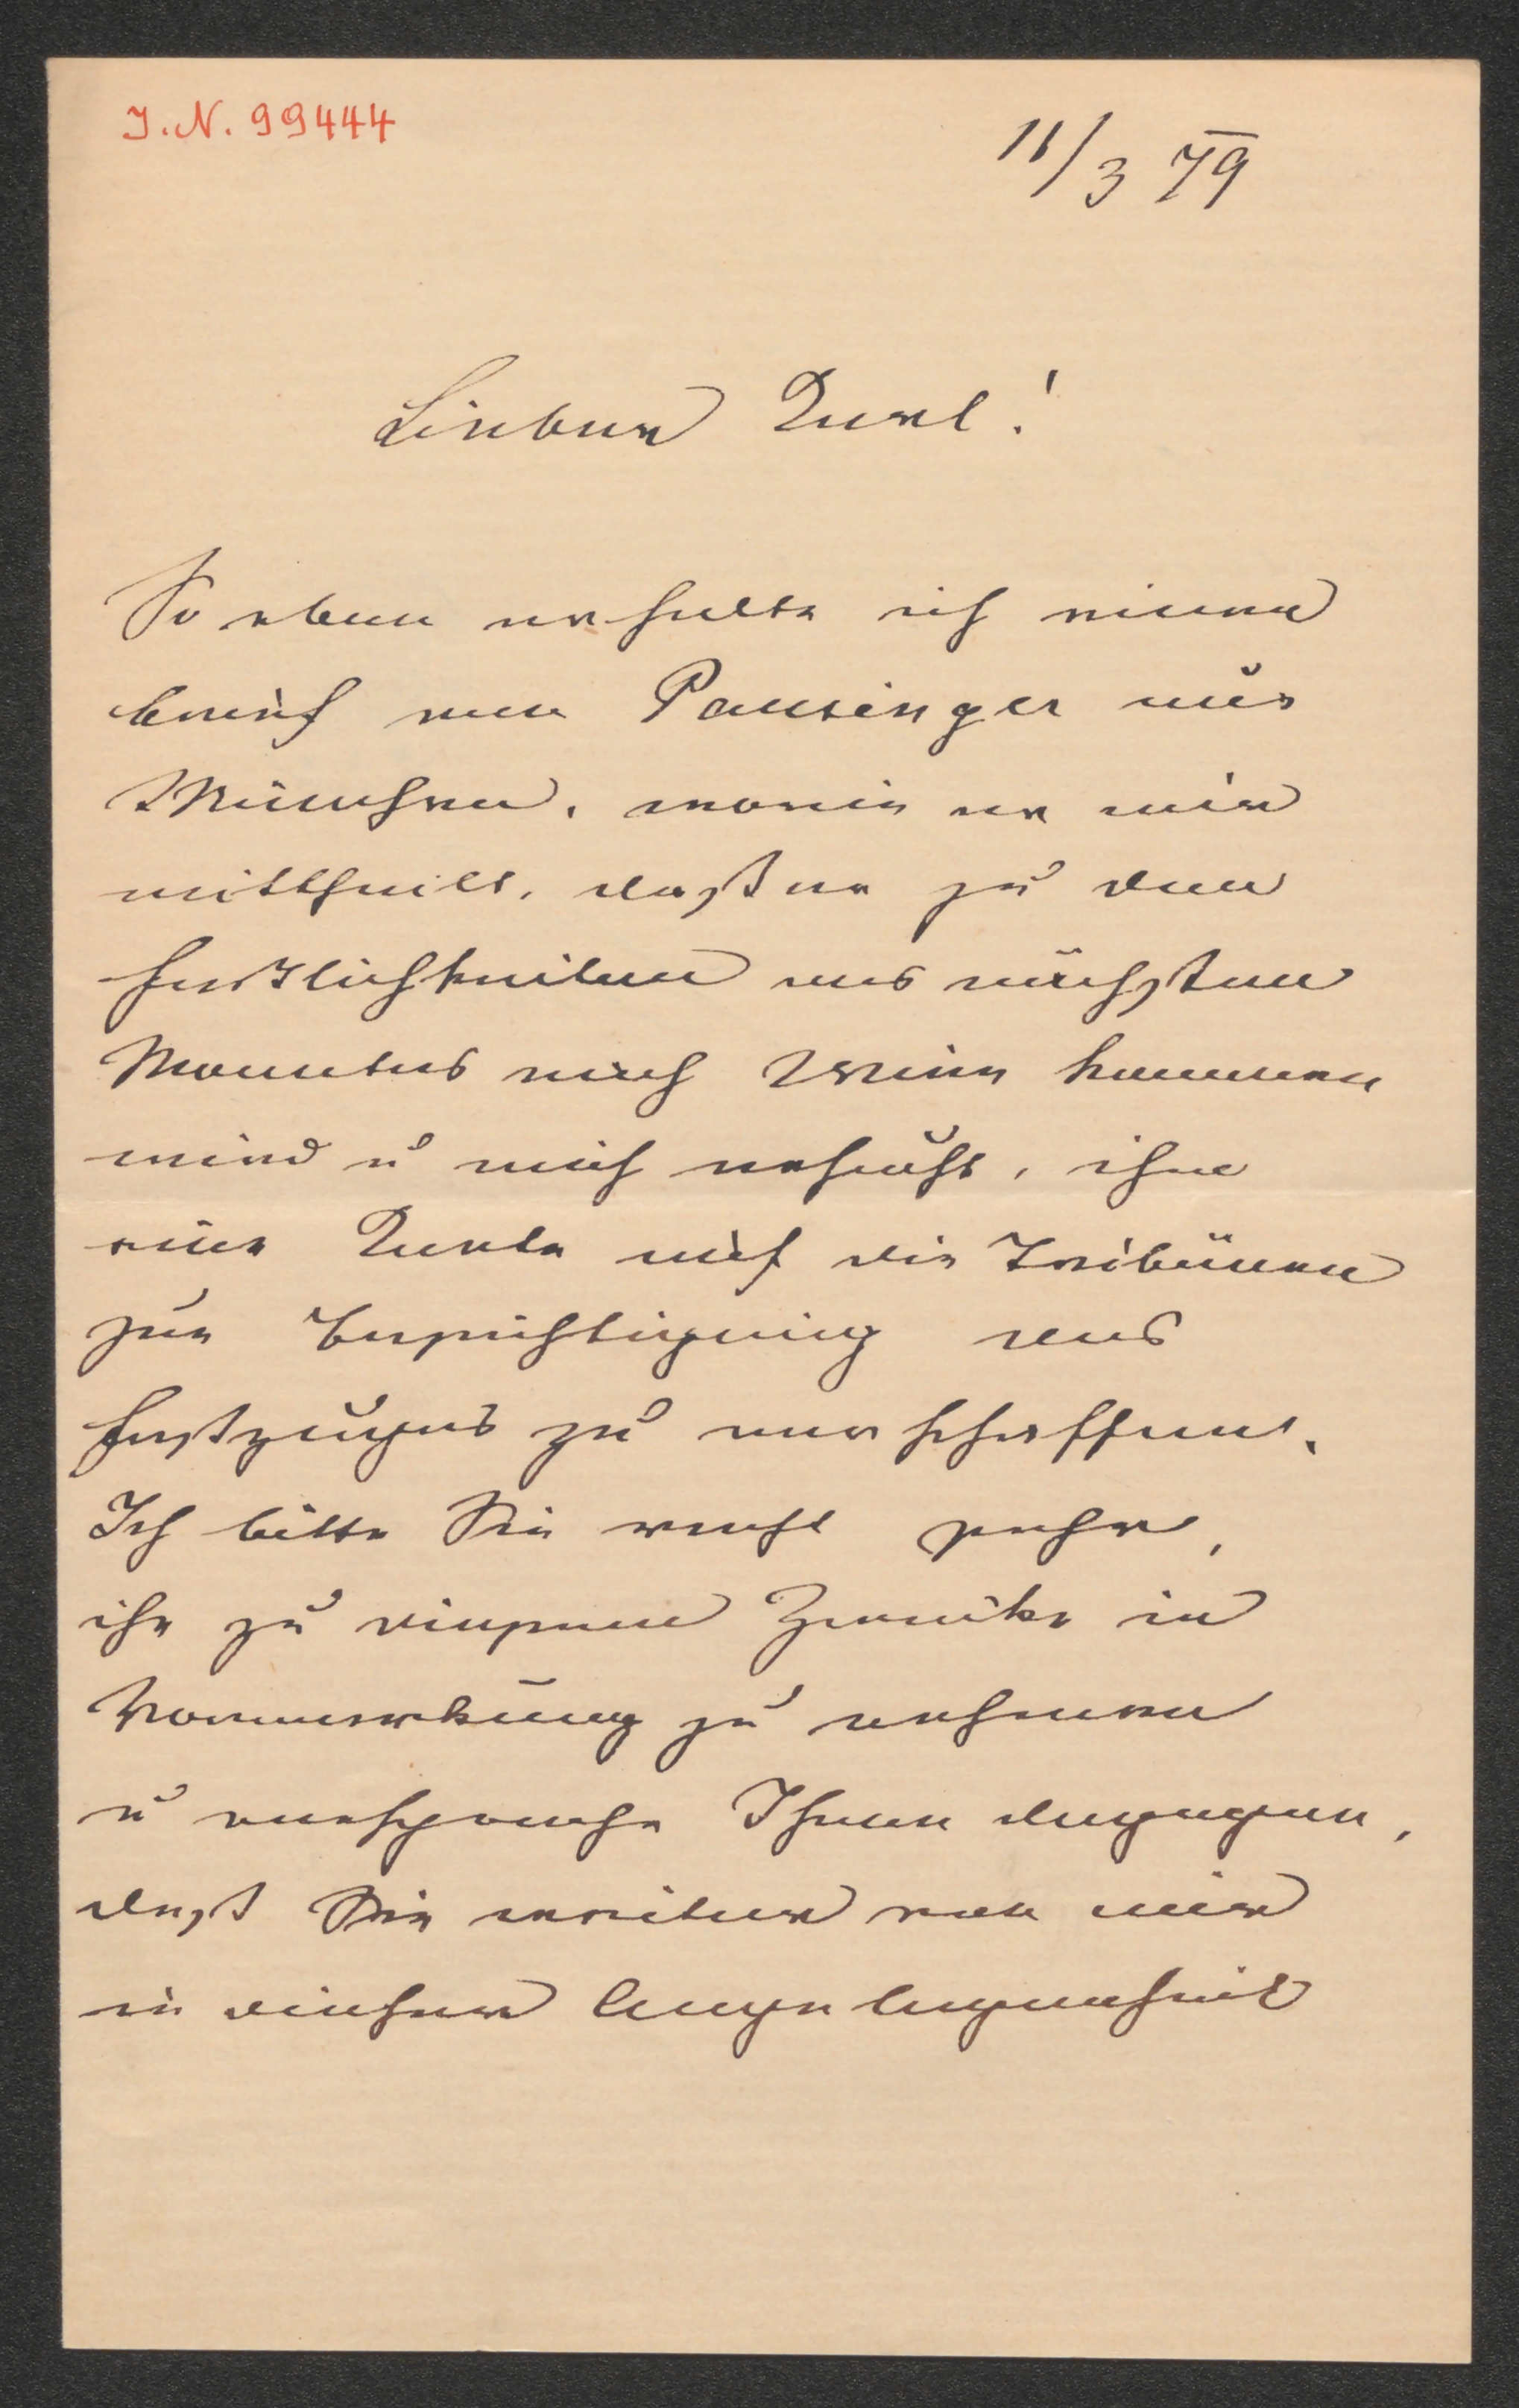 I. N. 99444
11/3 79
Lieber Karl!
So eben erhalte ich einen
brief von Pausinger aus
München, worin er mir
mittheilt, daß er zu den
Festlichkeiten des nächsten
Monates nach Wien kommen
wird u mich ersucht, ihm
eine Karte auf die Tribünen
zur Besichtigung des
Festzuges zu verschaffen.
Ich bitte Sie recht sehr,
ihn zu diesem Zwecke in
Vormerkung zu nehmen
u verspreche Ihnen dagegen,
daß Sie weiter von mir
in dieser Angelegenheit